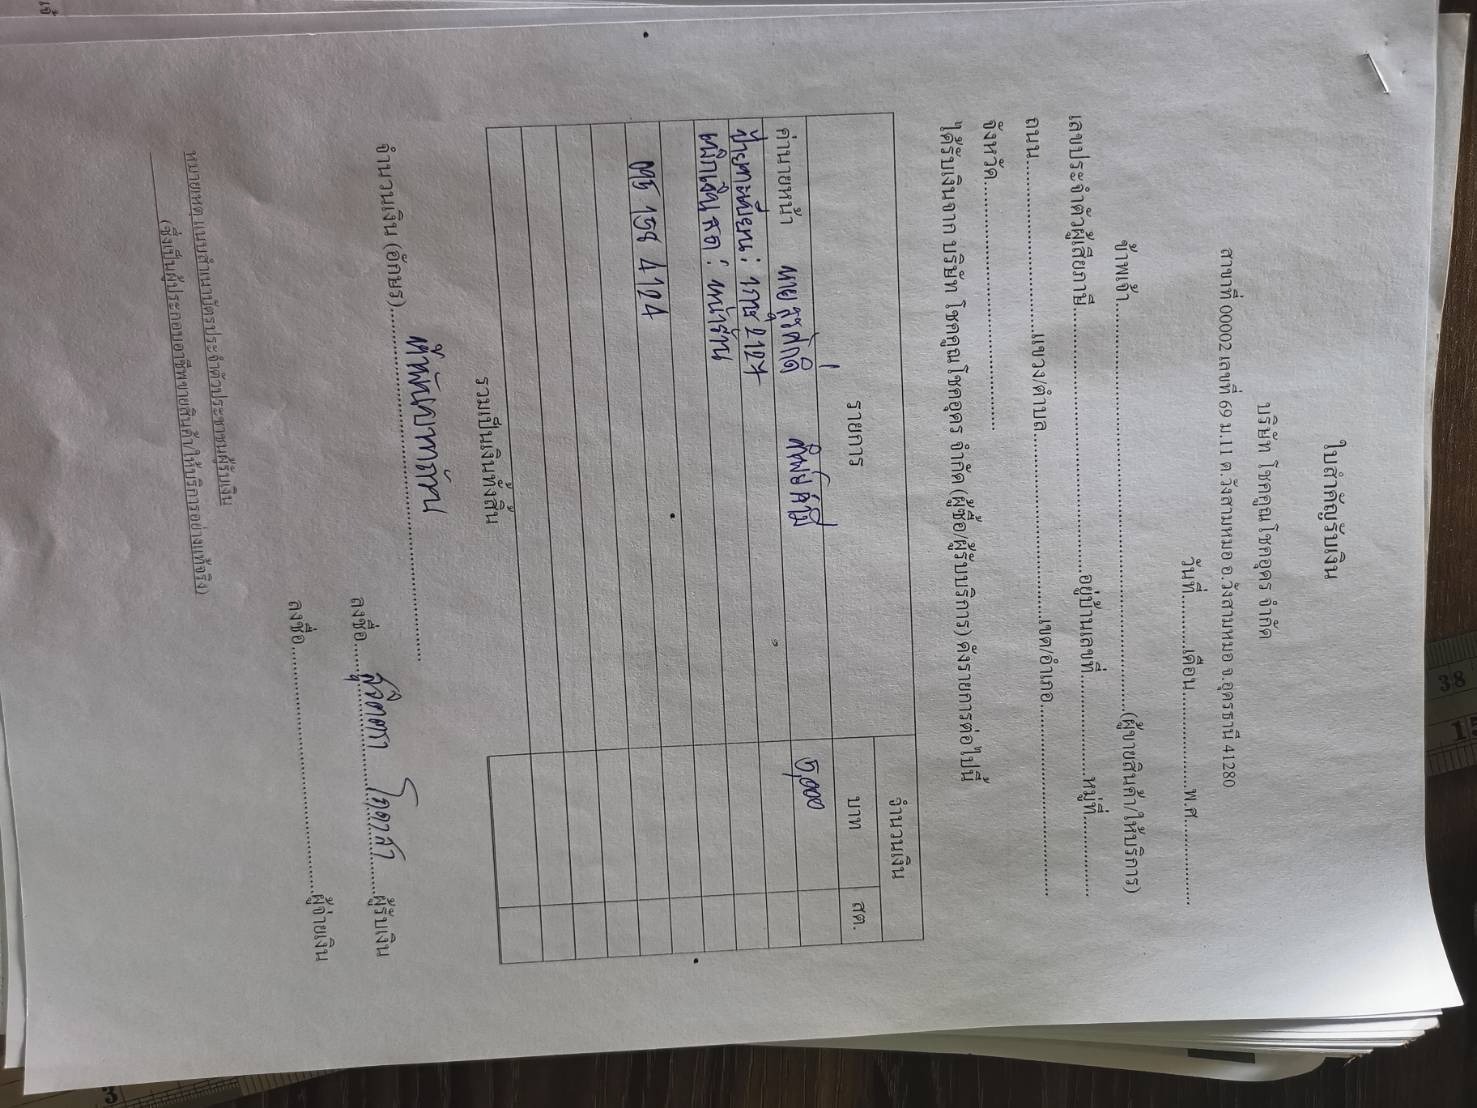 ใบสำคัญรับเงิน
บริษัท โชคคูณโชคอุดร จำกัด
สาขาที่ 00002 เลขที่ 69 ม.11 ต.วังสามหมอ อ.วังสามหมอ จ.อุดรธานี 41280
วันที่..........เดือน....................พ.ศ...............
ข้าพเจ้า..............................(ผู้ขายสินค้า/ให้บริการ)
เลขประจำตัวผู้เสียภาษี..............................อยู่บ้านเลขที่....................หมู่ที่...............
ถนน..............................แขวง/ตำบล..............................เขต/อำเภอ..............................
จังหวัด..............................
ได้รับเงินจาก บริษัท โชคคูณโชคอุดร จำกัด (ผู้ซื้อ/ผู้รับบริการ) ดังรายการต่อไปนี้
รายการ จำนวนเงิน
บาท สต.
ค่านายหน้า นายสุรศักดิ์ 5,000
ป้ายทะเบียน: 2124
หน้าร้าน
4124
รวมเป็นเงินทั้งสิ้น
จำนวนเงิน (อักษร)....ห้าพันบาทถ้วน....
ลงชื่อ....สุจิตตรา....ผู้รับเงิน
ลงชื่อ..............................ผู้จ่ายเงิน
หมายเหตุ แนบสำเนาบัตรประจำตัวประชาชนผู้รับเงิน
(ซึ่งเป็นผู้ประกอบอาชีพขายสินค้า/ให้บริการอย่างแท้จริง)
38
1
3